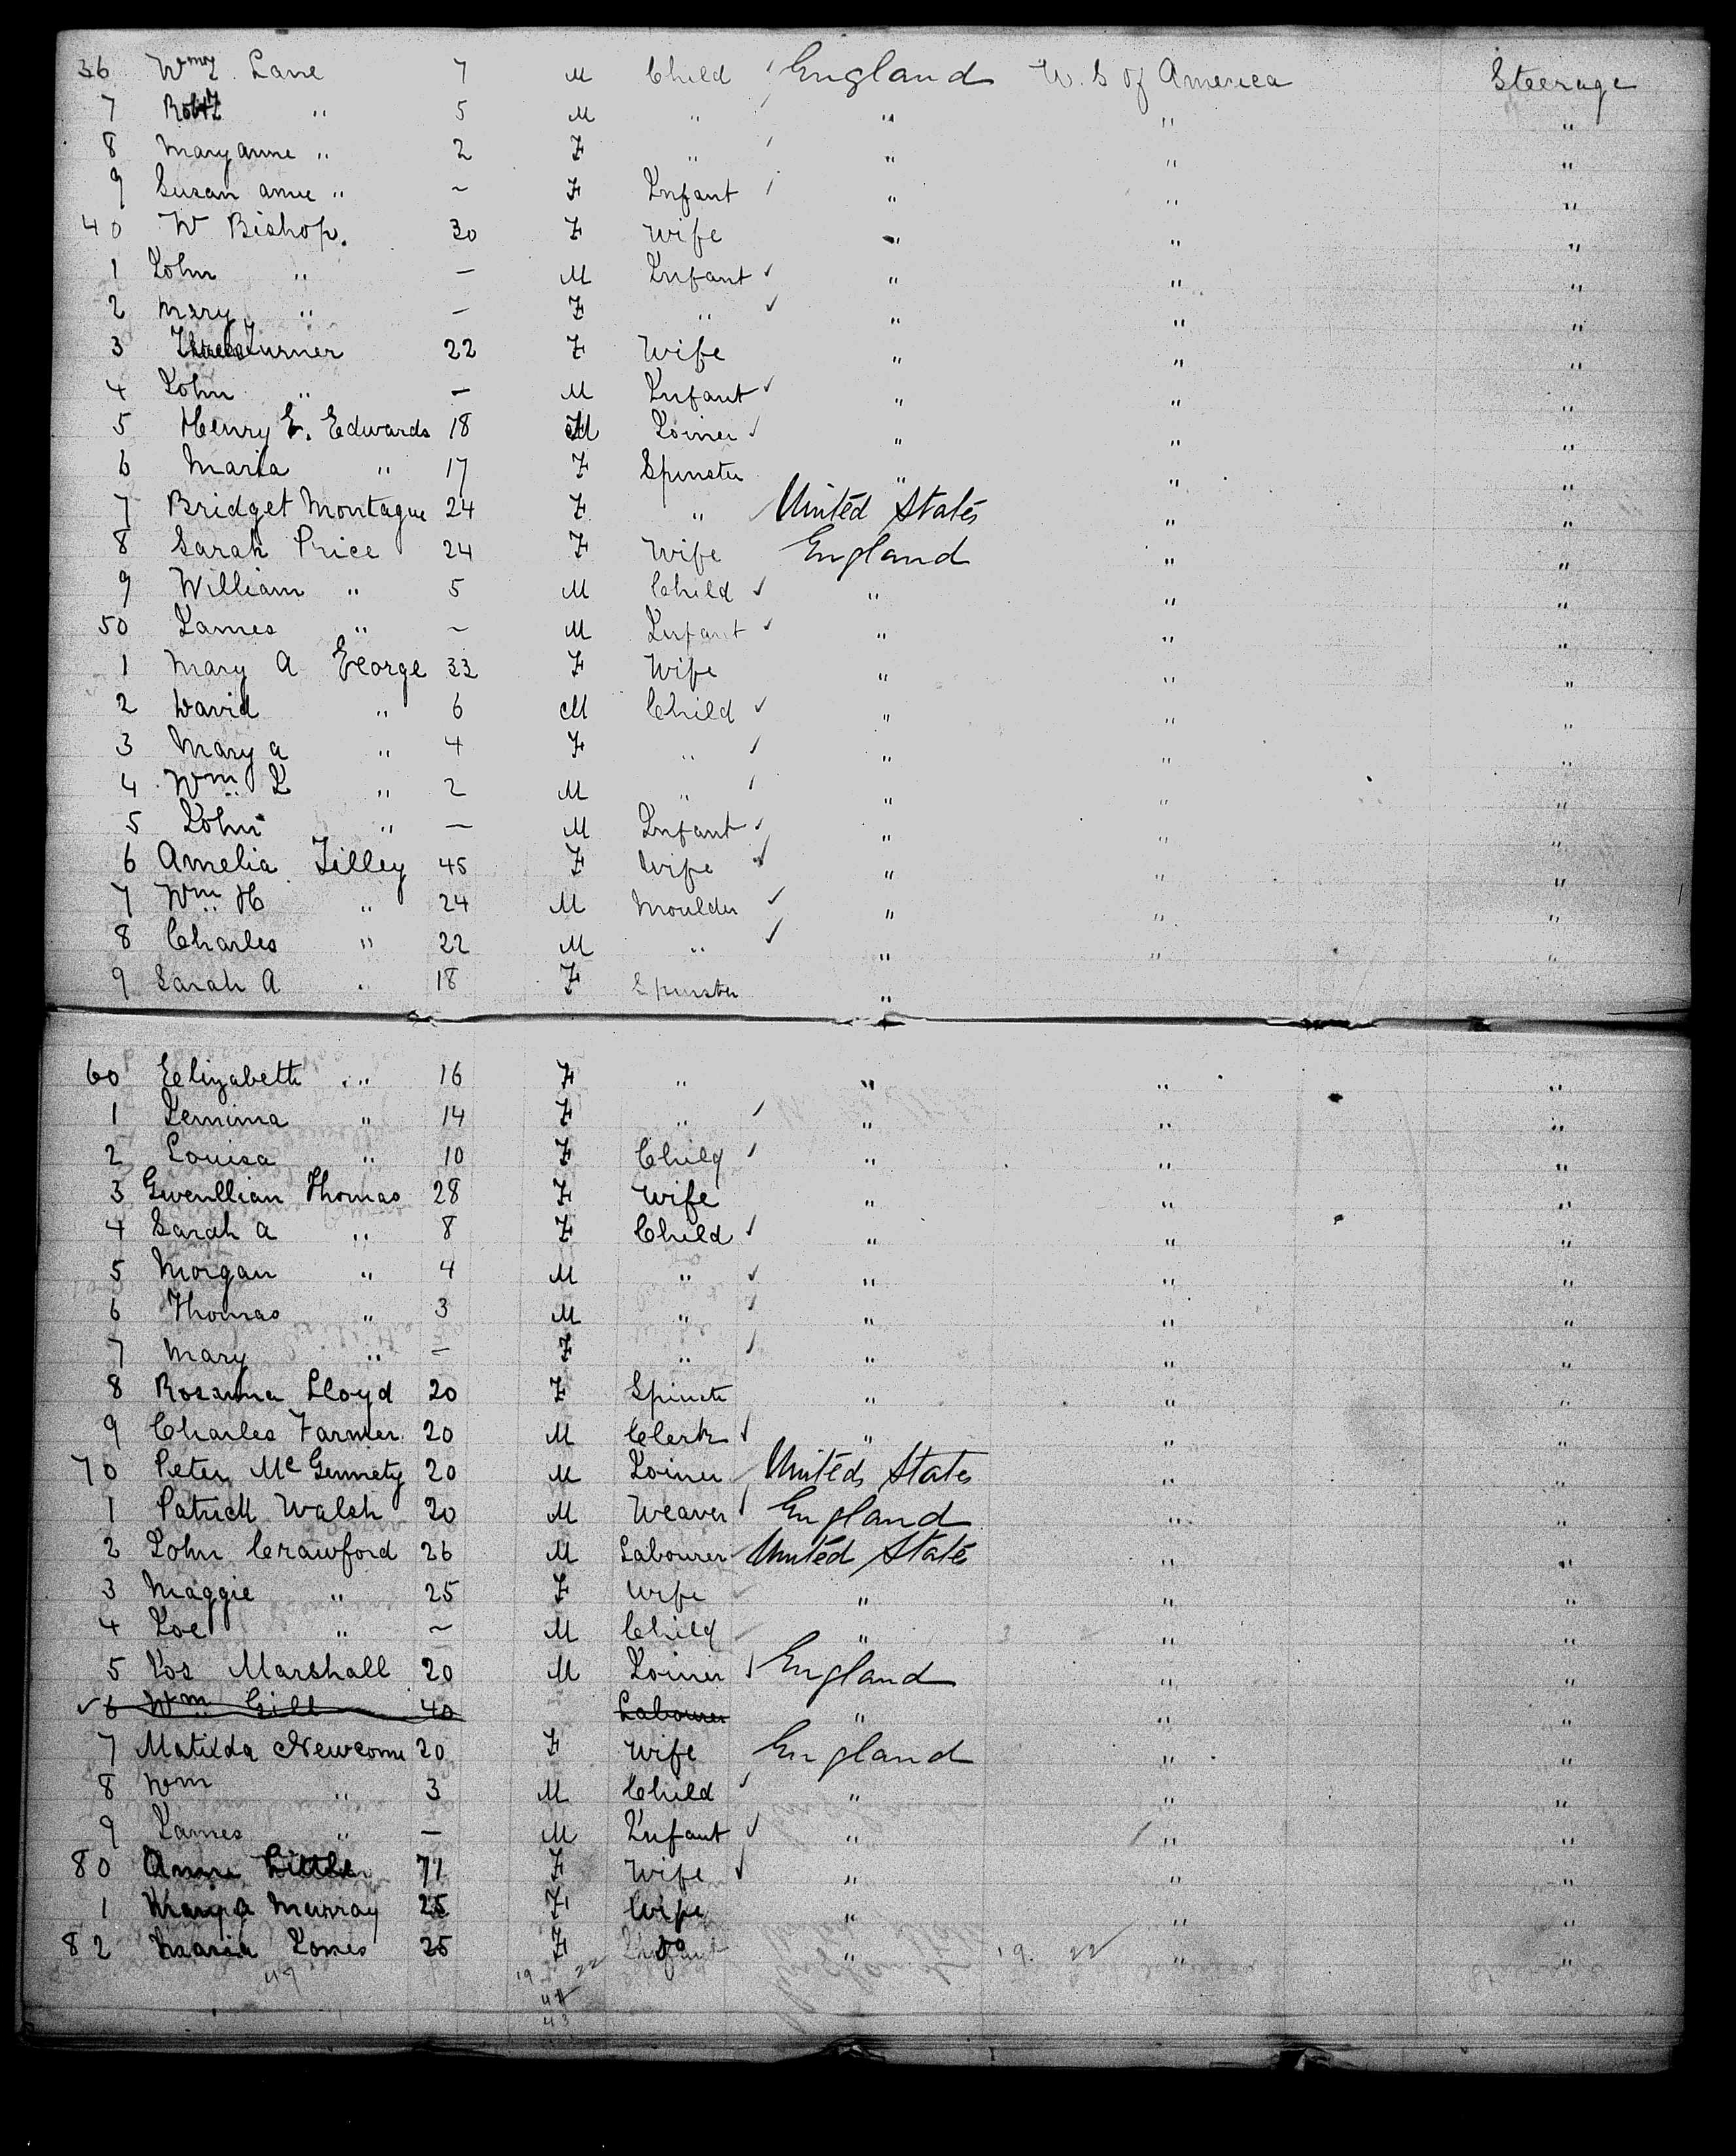 36 Wm Lane 7 M Child England U.S of America Steerage
7 Robt " 5 M " " " "
8 Mary anne " 2 F " " " "
9 Susan anne " ~ F Infant " " "
40 W Bishop. 30 F Wife " " "
1 John " — M Infant " " "
2 Mary " — F " " " "
3 Turner 22 F Wife " " "
4 John " — M Infant " " "
5 Henry E. Edwards 18 M Joiner " " "
6 Maria " 17 F Spinster " " "
7 Bridget Montague 24 F " United States " "
8 Sarah Price 24 F Wife England " "
9 William " 5 M Child " " "
50 James " ~ M Infant " " "
1 Mary A George 33 F Wife " " "
2 David " 6 M Child " " "
3 Mary a " 4 F " " " "
4 Wm J " 2 M " " " "
5 John " — M Infant " " "
6 Amelia Tilley 45 F Wife " " "
7 Wm H " 24 M Moulder " " "
8 Charles " 22 M " " " "
9 Sarah A " 18 F Spinster "
60 Elizabeth " 16 F " " " "
1 Jemima " 14 F " " " "
2 Louisa " 10 F Child " " "
3 Gwenllian Thomas 28 F Wife " " "
4 Sarah a " 8 F Child " " "
5 Morgan " 4 M " " " "
6 Thomas " 3 M " " " "
7 Mary " — F " " " "
8 Rosanna Lloyd 20 F Spinster " " "
9 Charles Farmer 20 M Clerk " " "
70 Peter McGennety 20 M Joiner United States " "
1 Patrick Walsh 20 M Weaver England " "
2 John Crawford 26 M Labourer United States " "
3 Maggie " 25 F Wife " " "
4 Joe " ~ M Child " " "
5 Jos Marshall 20 M Joiner England " "
6 Wm Gill 40 Labourer " " "
7 Matilda Newcome 20 F Wife England " "
8 Wm " 3 M Child " " "
9 James " — M Infant " " "
80 Anne Little 71 F Wife " " "
1 Murray 25 F Wife " " "
82 Maria Jones 25 F Do " 19. 22 " "
47 19 22
43